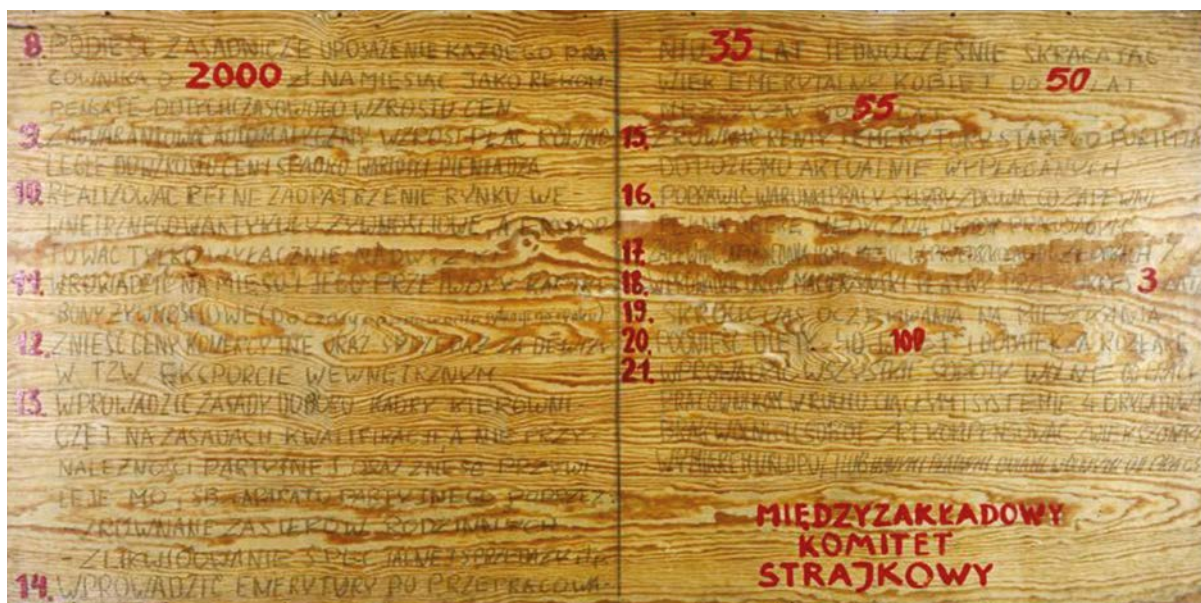 8. PODNIEŚĆ ZASADNICZE UPOSAŻENIE KAŻDEGO PRA
COWNIKA O 2000 ZŁ NA MIESIĄC JAKO REKOM-
PENSATĘ DOTYCHCZASOWEGO WZROSTU CEN
9. ZAGWARANTOWAĆ AUTOMATYCZNY WZROST PŁAC RÓWNO-
LEGLE DO WZROSTU CEN I SPADKU WARTOŚCI PIENIĄDZA
10. REALIZOWAĆ PEŁNE ZAOPATRZENIE RYNKU WE
WNĘTRZNEGO W ARTYKUŁY ŻYWNOŚCIOWE, A EKSPOR
TOWAĆ TYLKO I WYŁĄCZNIE NADWYŻKI
11. WPROWADZIĆ NA MIĘSO I JEGO PRZETWORY KARTKI-
BONY ŻYWNOŚCIOWE (DO
12. ZNIEŚĆ CENY KOMERCYJNE ORAZ SPRZEDAŻ ZA DEWIZY
W TZW. EKSPORCIE WEWNĘTRZNYM
13. WPROWADZIĆ ZASADY DOBORU KADRY KIEROWNI
CZEJ NA ZASADACH KWALIFIKACJI, A NIE PRZY-
NALEŻNOŚCI PARTYJNEJ ORAZ ZNIEŚĆ PRZYWI
LEJE MO, SB I APARATU PARTYJNEGO POPRZEZ:
- ZRÓWNANIE ZASIŁKÓW RODZINNYCH
- ZLIKWIDOWANIE SPECJALNEJ SPRZEDAŻY itp.
14. WPROWADZIĆ EMERYTURY PO PRZEPRACOWA-
NIU 35 LAT JEDNOCZEŚNIE SKRACAJĄC
WIEK EMERYTALNY KOBIET DO 50 LAT
MĘŻCZYZN 55 LAT
15. ZRÓWNAĆ RENTY I EMERYTURY STAREGO PORTFELA
DO POZIOMU AKTUALNIE WYPŁACANYCH
16. POPRAWIĆ WARUNKI PRACY SŁUŻBY ZDROWIA CO ZAPEWNI
PEŁNĄ OPIEKĘ MEDYCZNĄ
17.
18. WPROWADZIĆ URLOP MACIERZYŃSKI PŁATNY PRZEZ OKRES 3
19. SKRÓCIĆ CZAS OCZEKIWANIA NA MIESZKANIA
20. PODNIEŚĆ DIETY Z 40 ZŁ 100 I DODATEK ZA ROZŁĄKĘ
21. WPROWADZIĆ WSZYSTKIE SOBOTY WOLNE OD PRACY
PRACOWNIKOM W RUCHU CIĄGŁYM I SYSTEMIE 4 BRYGADOWYM
BRAK WOLNYCH SOBÓT ZREKOMPENSOWAĆ ZWIĘKSZONYM
WYMIAREM URLOPU
MIĘDZYZAKŁADOWY
KOMITET
STRAJKOWY